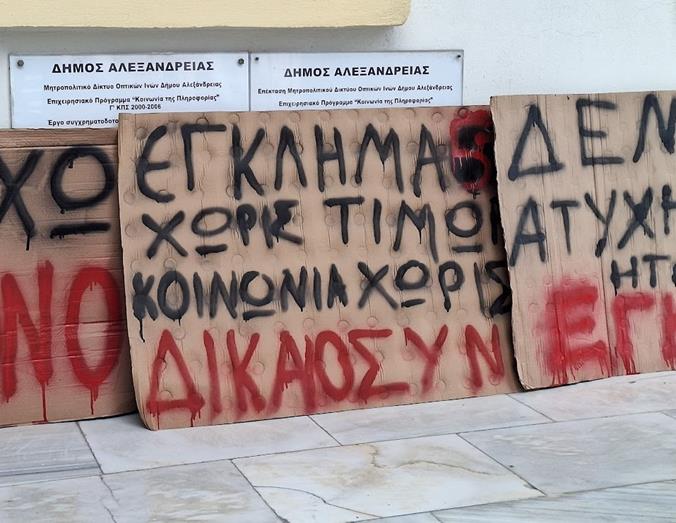 ΔΗΜΟΣ ΑΛΕΞΑΝΔΡΕΙΑΣ
Μητροπολιτικό Δίκτυο Οπτικών Ινών Δήμου Αλεξάνδρειας
Επιχειρησιακό Πρόγραμμα "Κοινωνία της Πληροφορίας"
Γ' ΚΠΣ 2000-2006
Έργο συγχρηματοδοτο
ΔΗΜΟΣ ΑΛΕΞΑΝΔΡΕΙΑΣ
Επέκταση Μητροπολιτικού Δικτύου Οπτικών Ινών Δήμου Αλεξάνδρειας
Επιχειρησιακό Πρόγραμμα "Κοινωνία της Πληροφορίας"
ΧΩ
ΝΟ
ΕΓΚΛΗΜΑ
ΧΩΡΙΣ ΤΙΜΩ
ΚΟΙΝΩΝΙΑ ΧΩΡΙΣ
ΔΙΚΑΙΟΣΥΝ
ΔΕΝ
ΑΤΥΧΗ
ΗΤΟ
ΕΓΚ